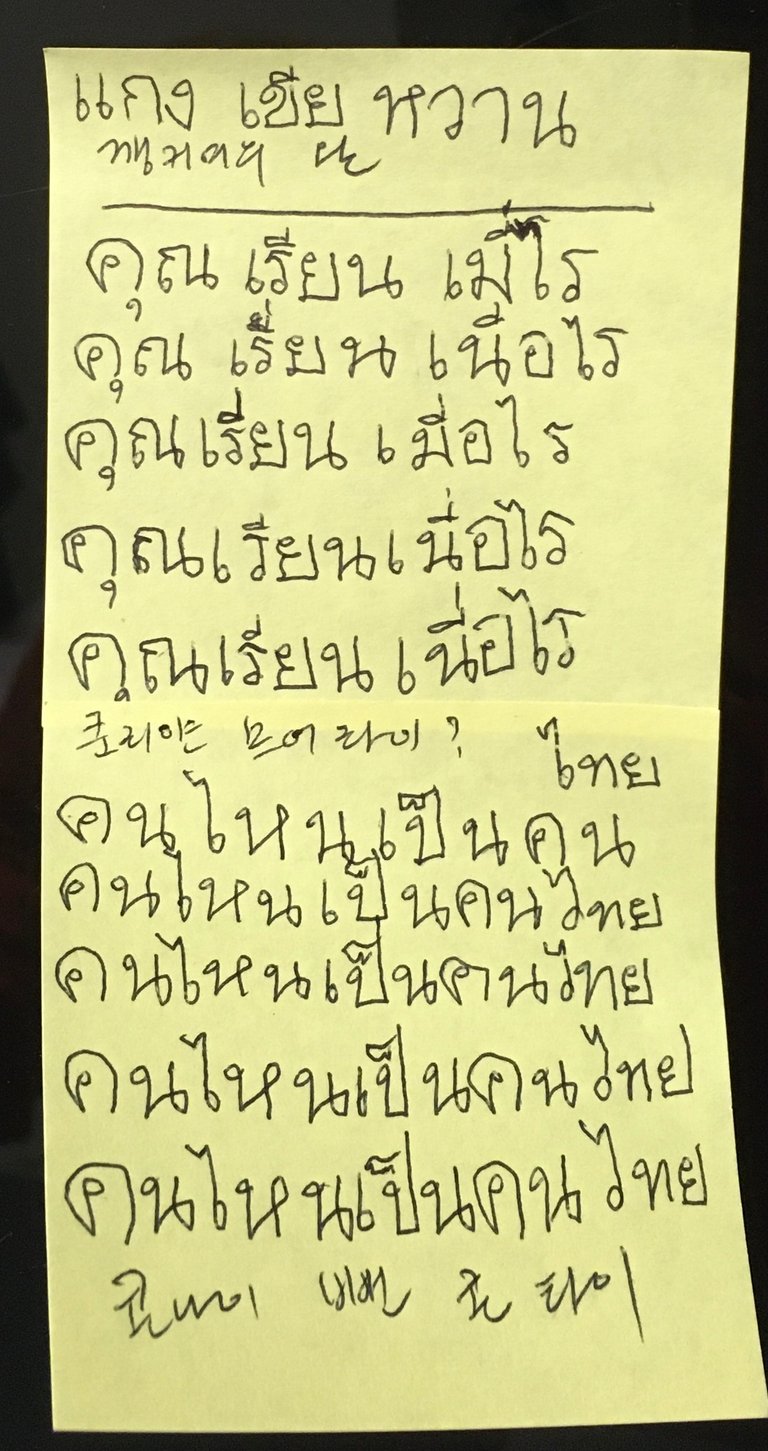 แกง เขีย หวาน
คุณ เรียน เมื่ไร
คุณ เรียน เนือไร
คุณเรี่ยน เมื่อไร
คุณเรียนเนื่อไร
คุณเรียนเนื่อไร
쿤리얀 므어라이?
ไทย
คนไหนเป็นคน
คนไหนเป็นคนไทย
คนไหนเป็นคนไทย
คนไหนเป็นคนไทย
คนไหนเป็นคนไทย
콘나이 뻰 콘 타이